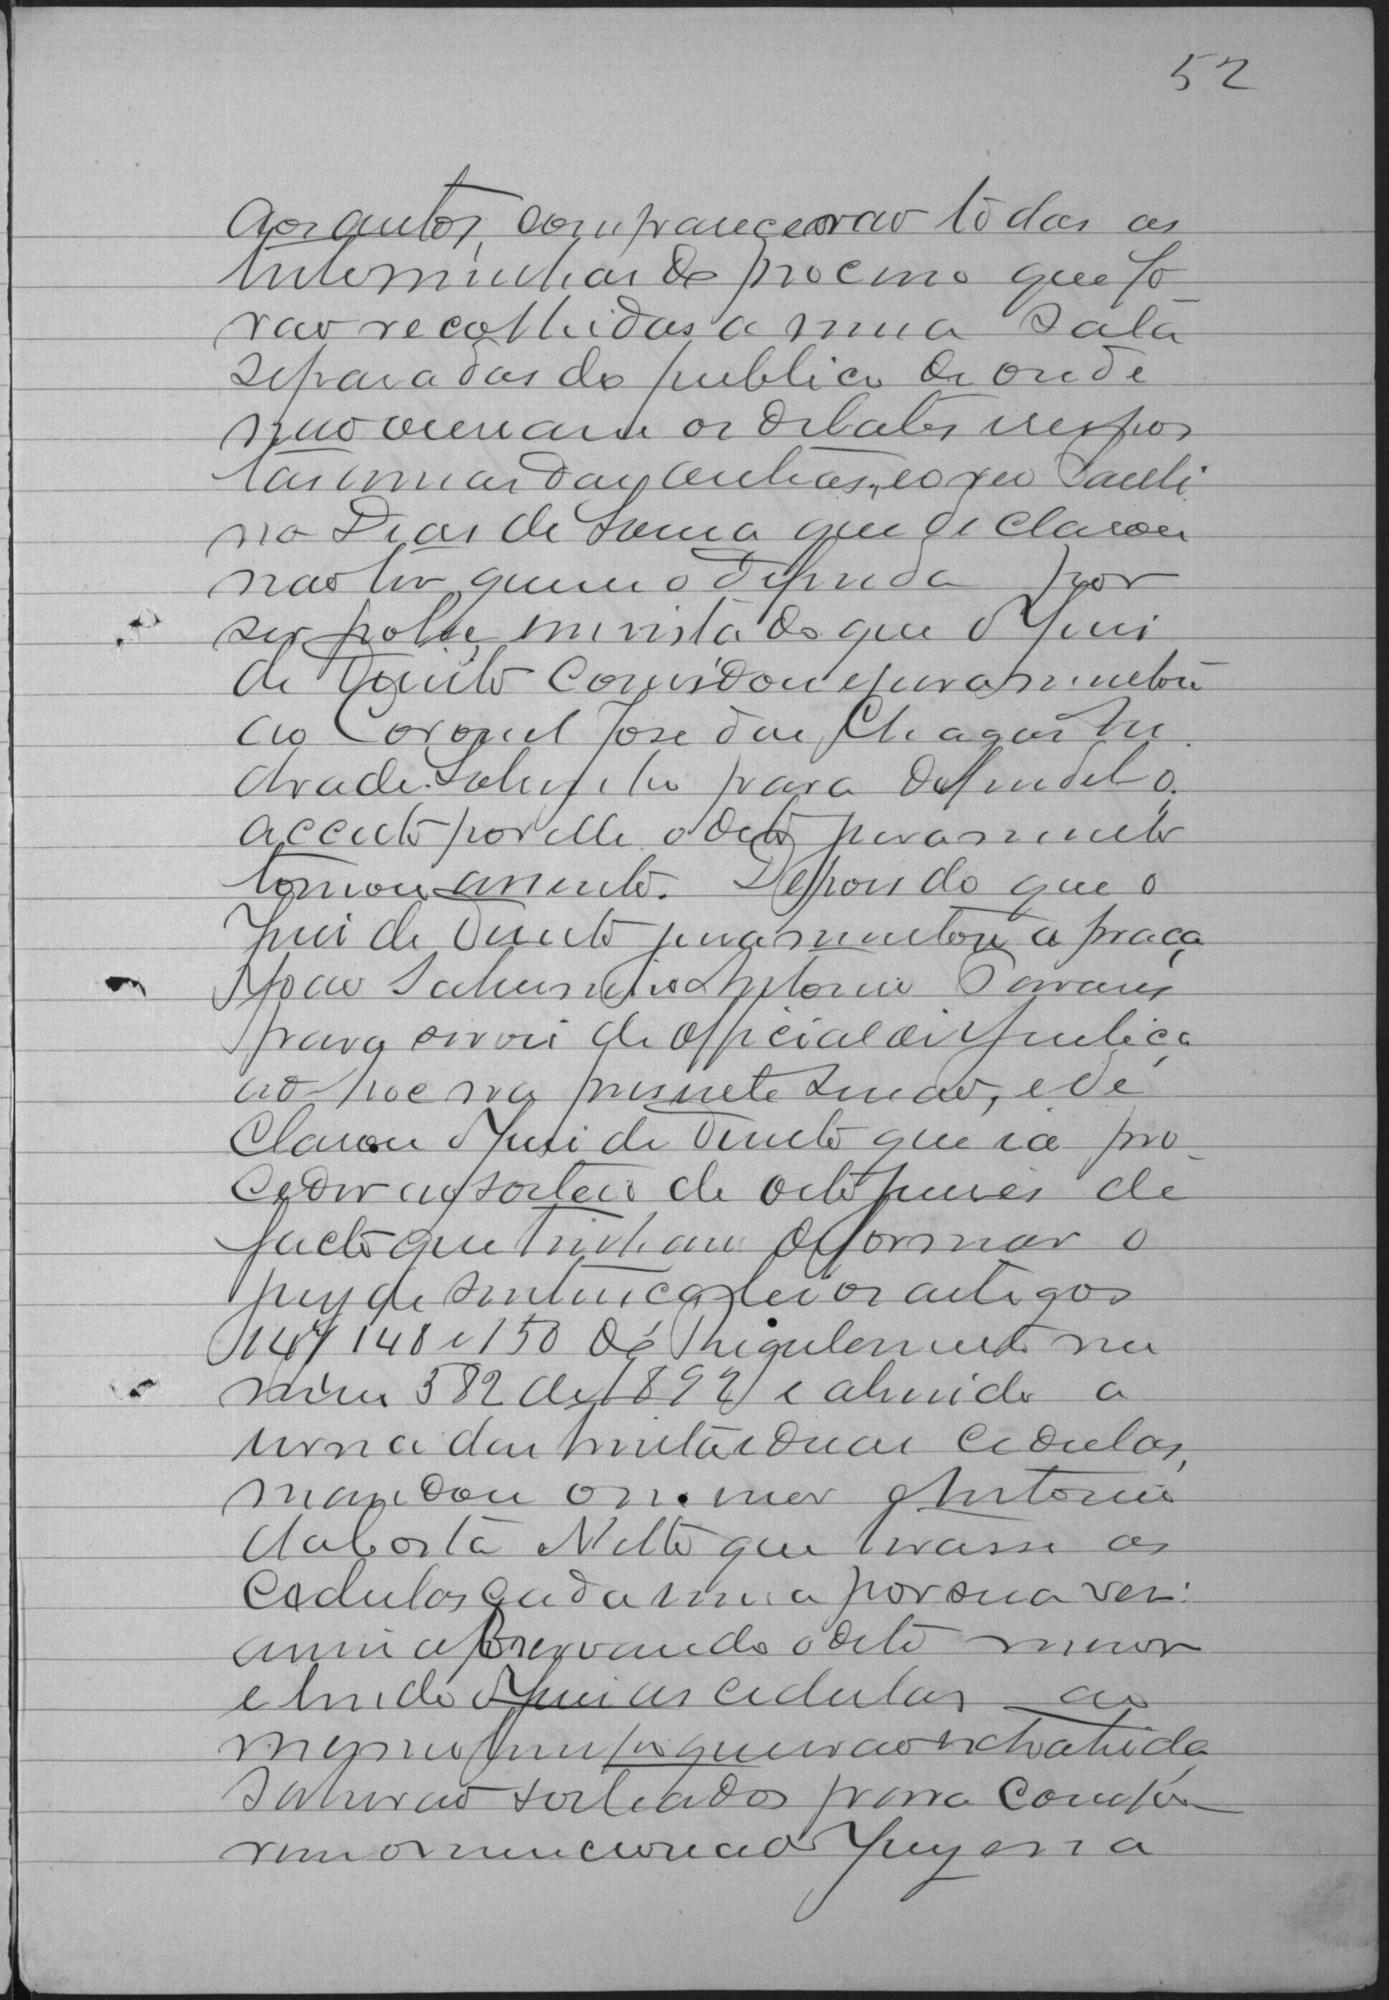 52
aos autos, comparecerao todas as
testeminhas do processo que fo
rao recolhidas a uma sala
separadas do publico de onde
nao ouviam os debates e respos
tas umas das outras, e o reo Pauli
no Dias de Souza que declarou
nao ter quem o defenda por
ser pobre, em vista do que o Jui
de Direito convidou e juramentou
ao Coronel Jose das Chagas An
drade Sobrinho para defendel o.
acceito por elle o dito juramento
tomou assento. Depois do que o
Jui de Direito juramentou a praca
Joao Antonio Tavares
para servir de official de Justiça
ad-hoc na presente secao, e de
clarou o Jui de Direito que ia pro
ceder ao sorteio de oito juises de
facto que tinhao de formar o
jury de sentença leu os artigos
147 148 e 150 do Regulamento nu
mero 582 de 1892 e abrindo a
urna das trinta e duas cedulas,
mandou o menor Antonio
da Costa Netto que tirasse as
cedulas cada uma por sua vez:
assim observando o dito menor
e lendo o Jui as cedulas ao
mesmo tempo que erao extrahida
sahirao sorteados para compo
rem o mencionado Jury os a